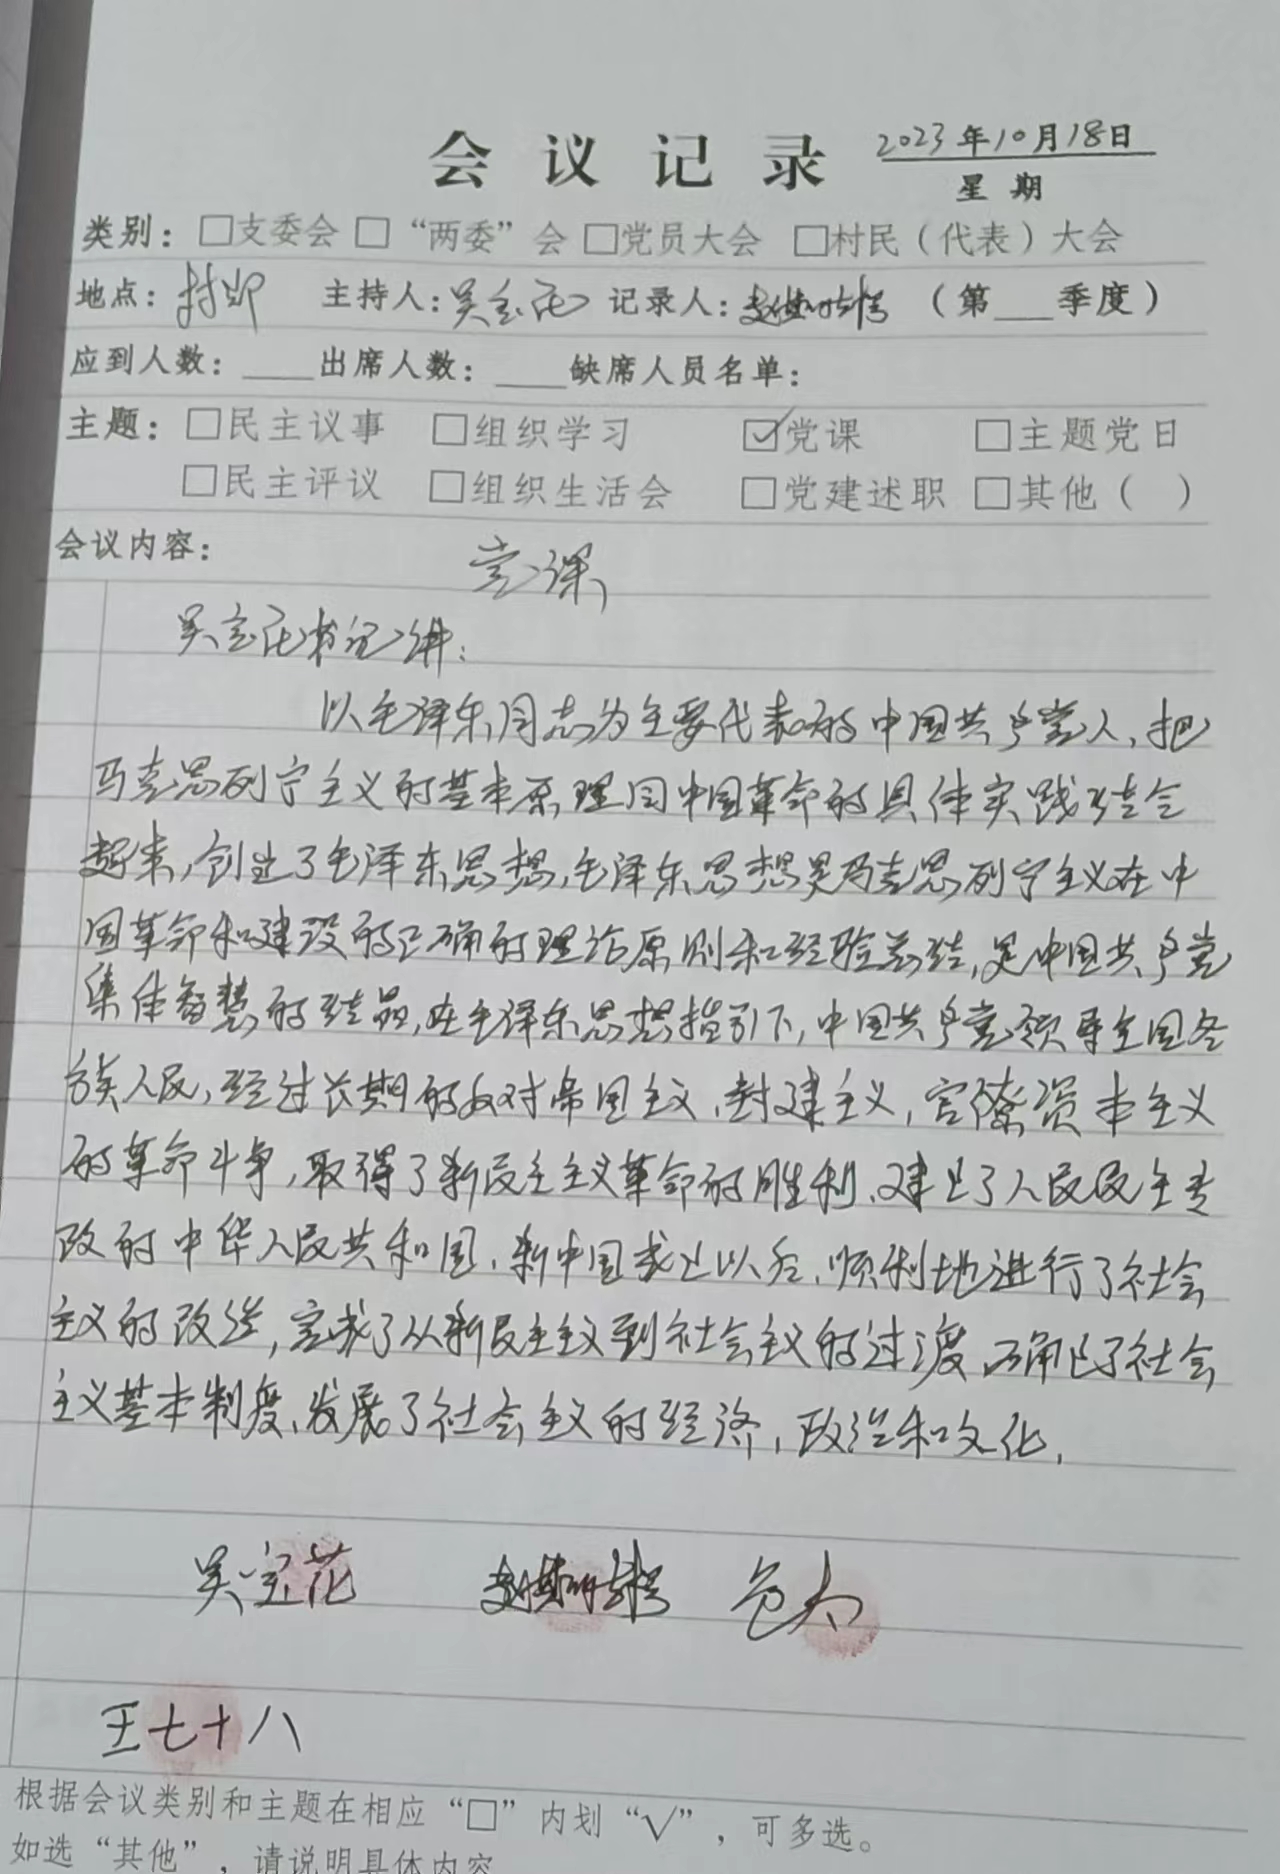 会议记录 2023年10月18日
星期
类别：□支委会 □“两委”会 □党员大会 □村民（代表）大会
地点：村部 主持人：吴宝花 记录人： （第___季度）
应到人数：____出席人数：____缺席人员名单：
主题：□民主议事 □组织学习 ☑党课 □主题党日
□民主评议 □组织生活会 □党建述职 □其他（ ）
会议内容： 党课
吴宝花书记讲：
以毛泽东同志为主要代表的中国共产党人，把
马克思列宁主义的基本原理同中国革命的具体实践结合
起来，创立了毛泽东思想，毛泽东思想是马克思列宁主义在中
国革命和建设的正确的理论原则和经验总结，是中国共产党
集体智慧的结晶，在毛泽东思想指引下，中国共产党领导全国各
族人民，经过长期的反对帝国主义、封建主义，官僚资本主义
的革命斗争，取得了新民主主义革命的胜利、建立了人民民主专
政的中华人民共和国，新中国成立以后，顺利地进行了社会
主义的改造，完成了从新民主主义到社会主义的过渡，确立了社会
主义基本制度、发展了社会主义的经济，政治和文化，
吴宝花 包太
王七十八
根据会议类别和主题在相应“□”内划“√”，可多选。
如选“其他”，请说明具体内容